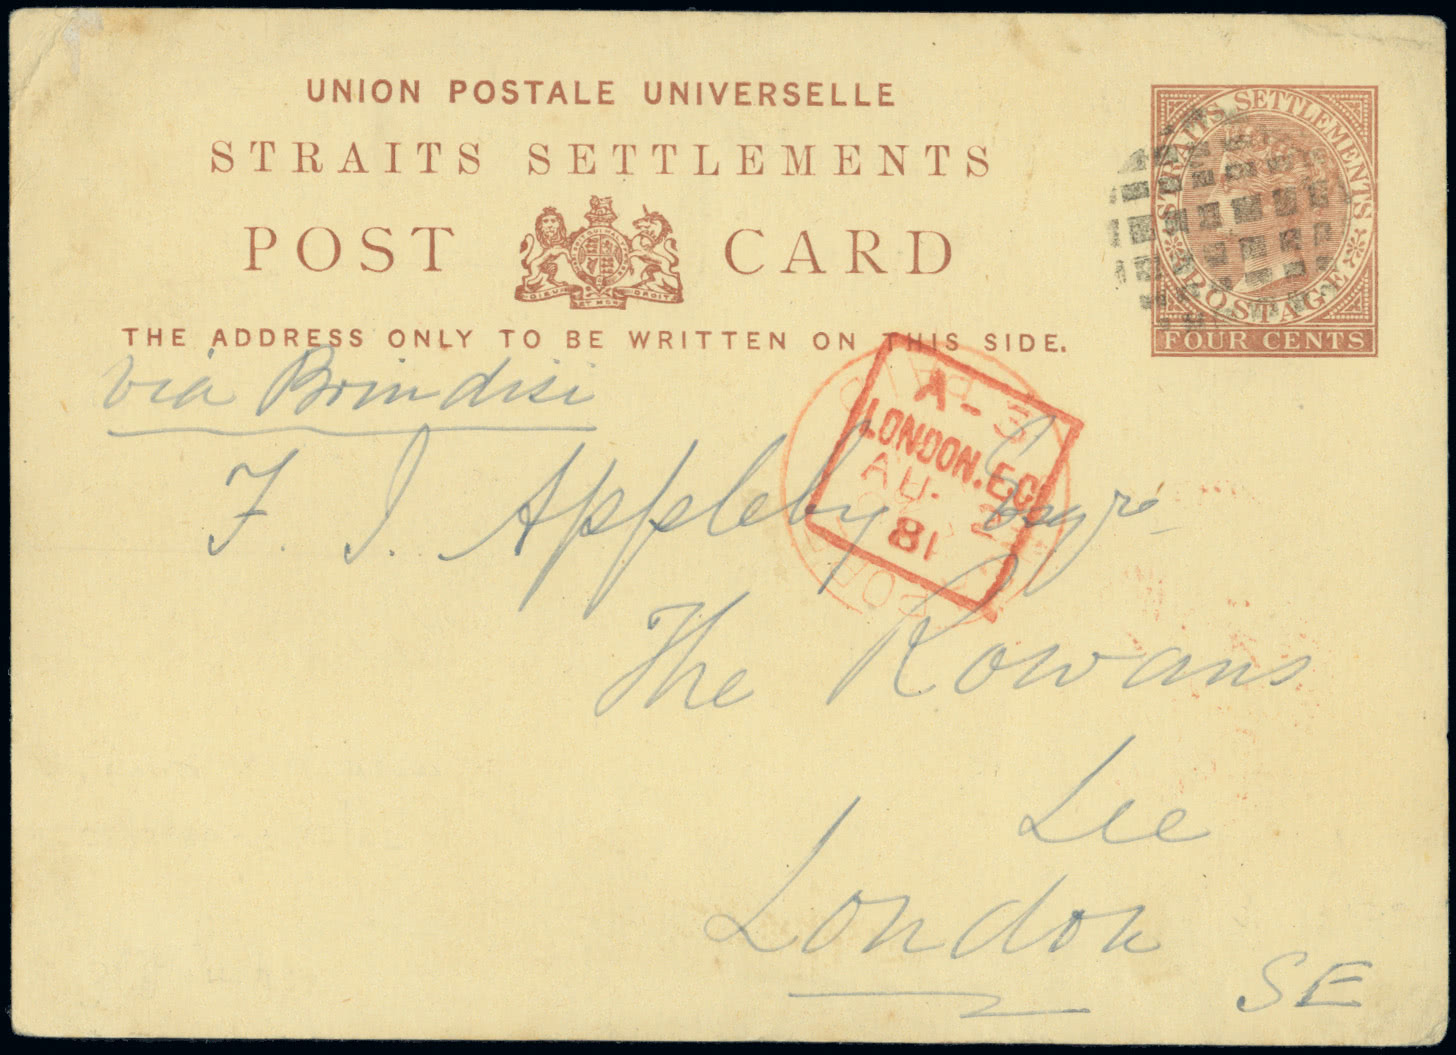 UNION POSTALE UNIVERSELLE
STRAITS SETTLEMENTS
POST CARD
DIEU ET MON DROIT
THE ADDRESS ONLY TO BE WRITTEN ON THIS SIDE.
STRAITS SETTLEMENTS
POSTAGE
FOUR CENTS
via Brindisi
F. J. Appleby Esqre
The Rowans
Lee
London
SE
A - 3
LONDON.E.C
AU. 2
81
PAID